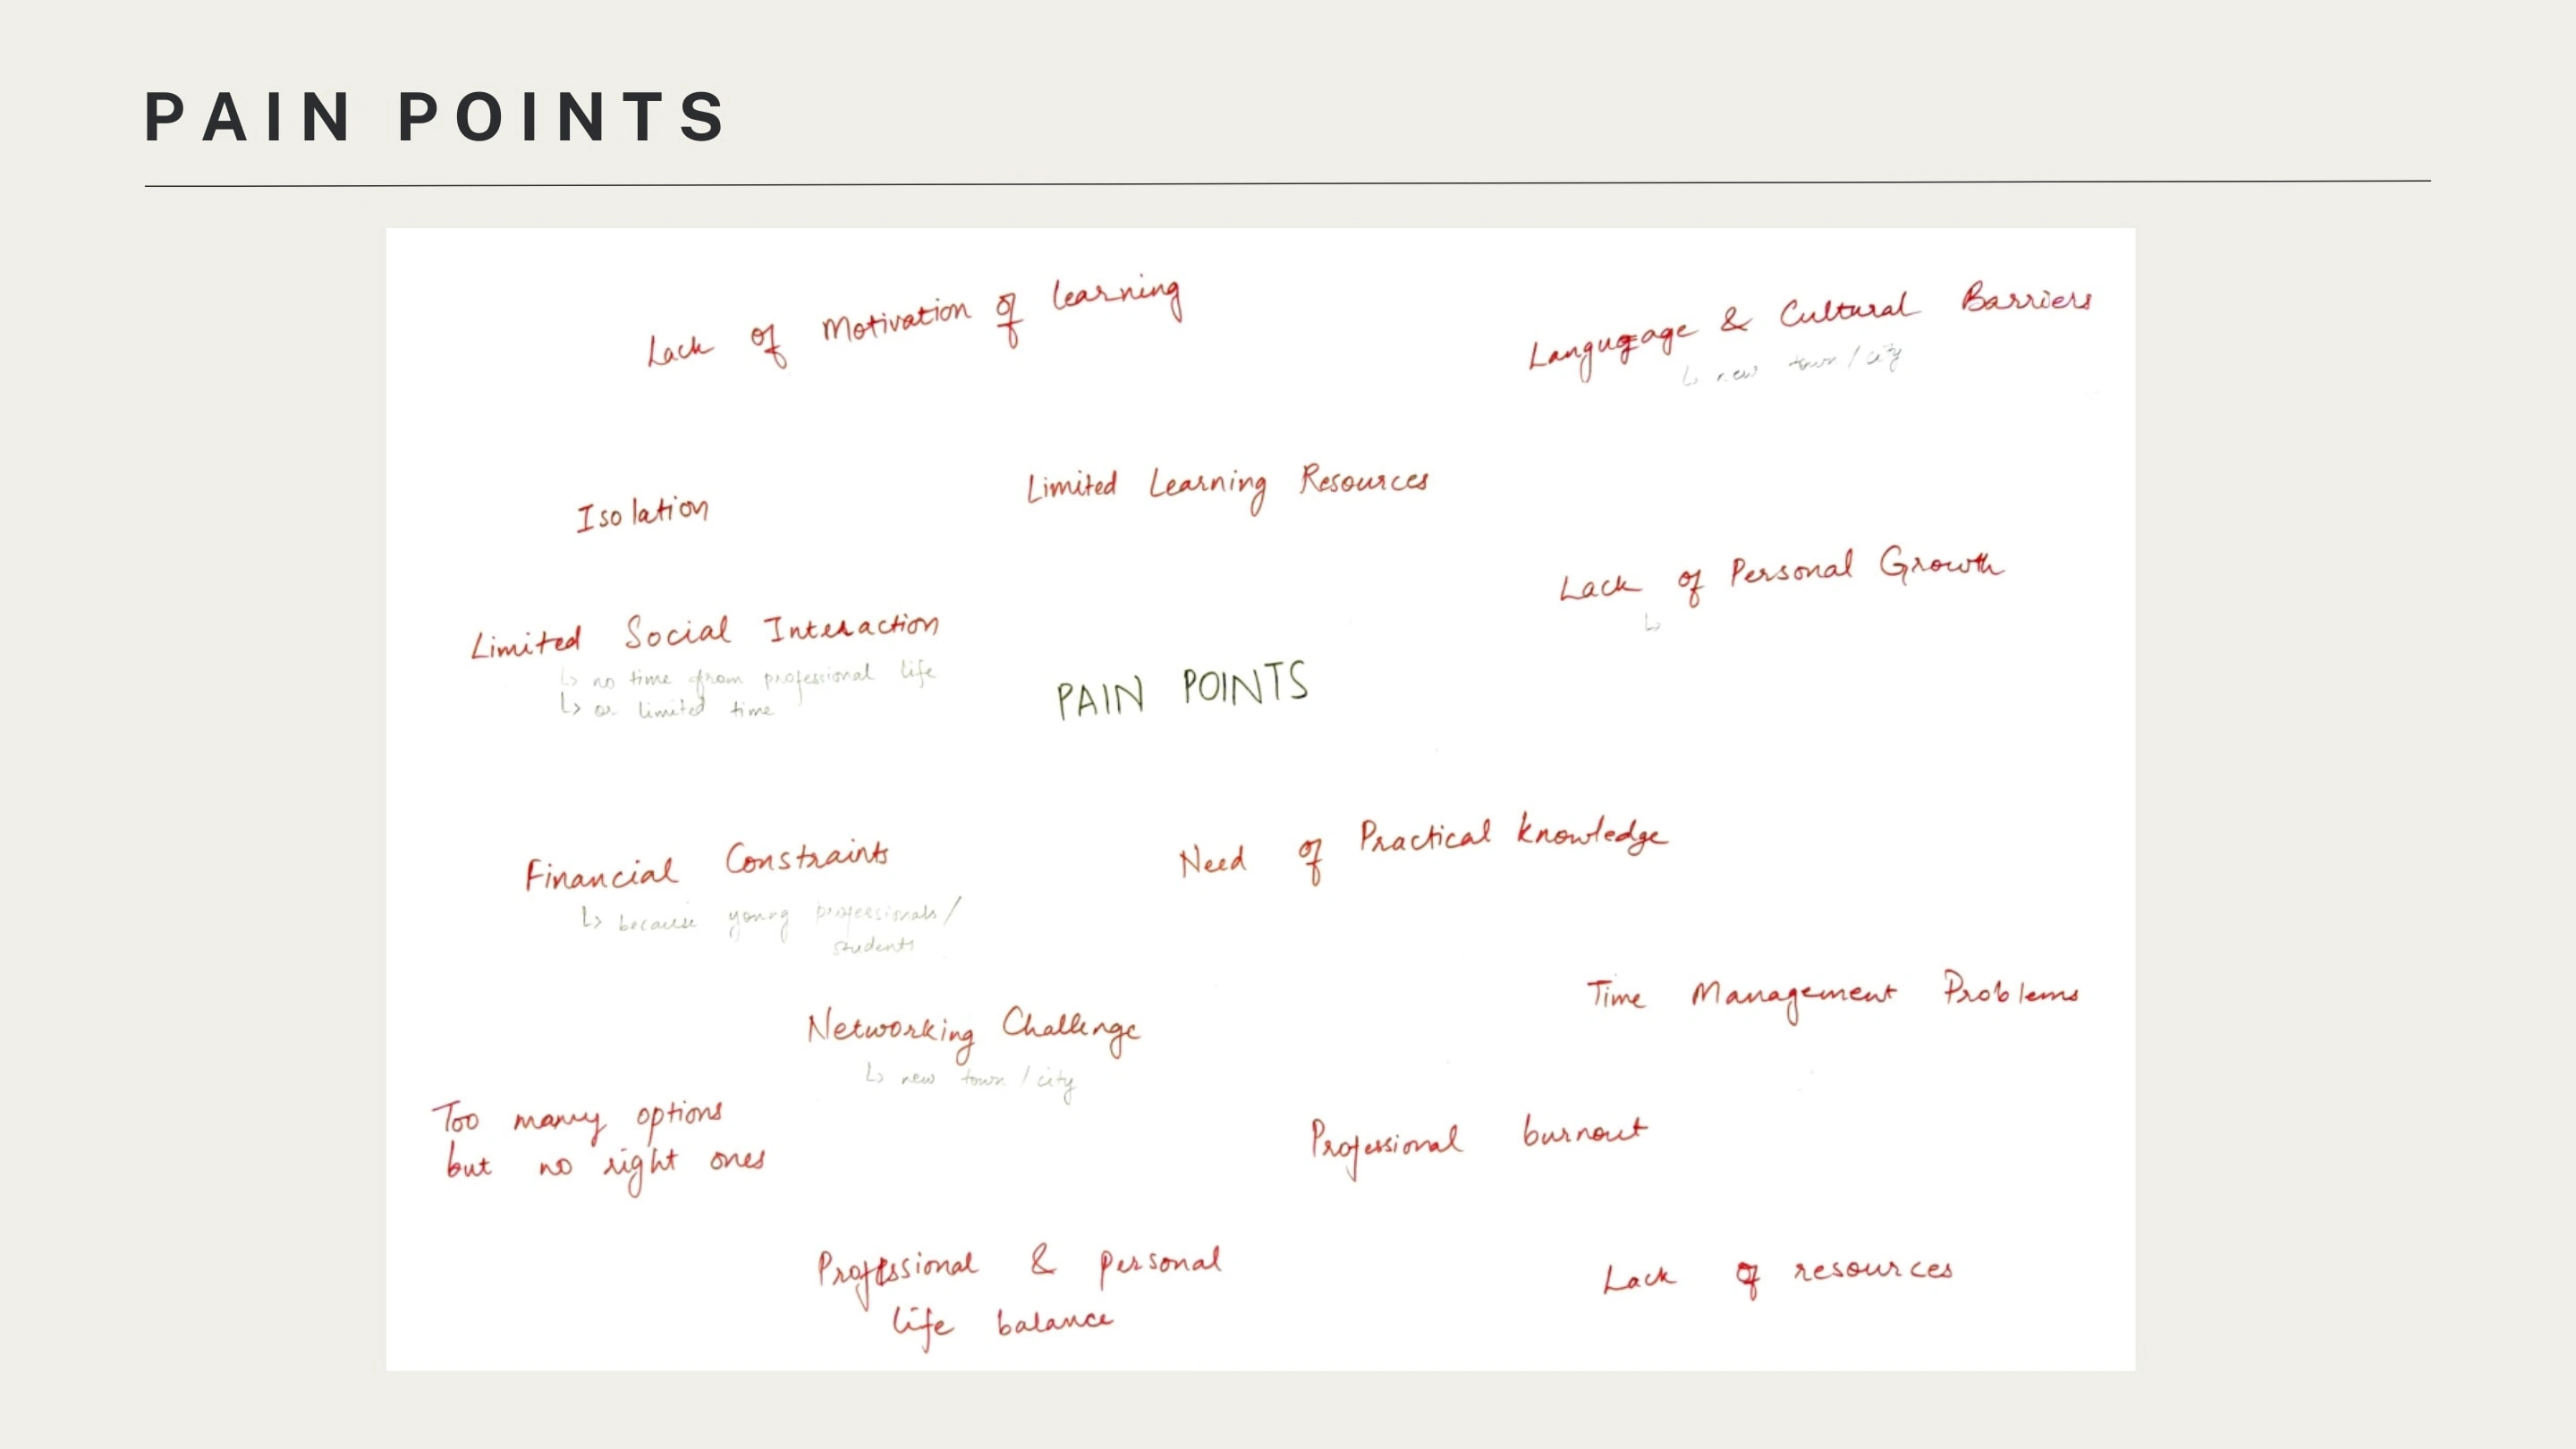 PAIN POINTS
Lack of Motivation of learning
Langugage & Cultural Barriers
↳ new town / city
Limited Learning Resources
Isolation
Lack of Personal Growth
↳
Limited Social Interaction
↳ no time from professional life
↳ or limited time
PAIN POINTS
Need of Practical knowledge
Financial Constraints
↳ because young professionals /
students
Time Management Problems
Networking Challenge
↳ new town / city
Too many options
but no right ones
Professional burnout
Professional & personal
life balance
Lack of resources